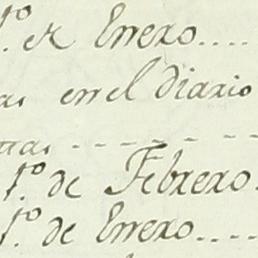 1º. de Enero....
as en el diario
mas - - - - - -
1º. de Febrero.
1º. de Enero....